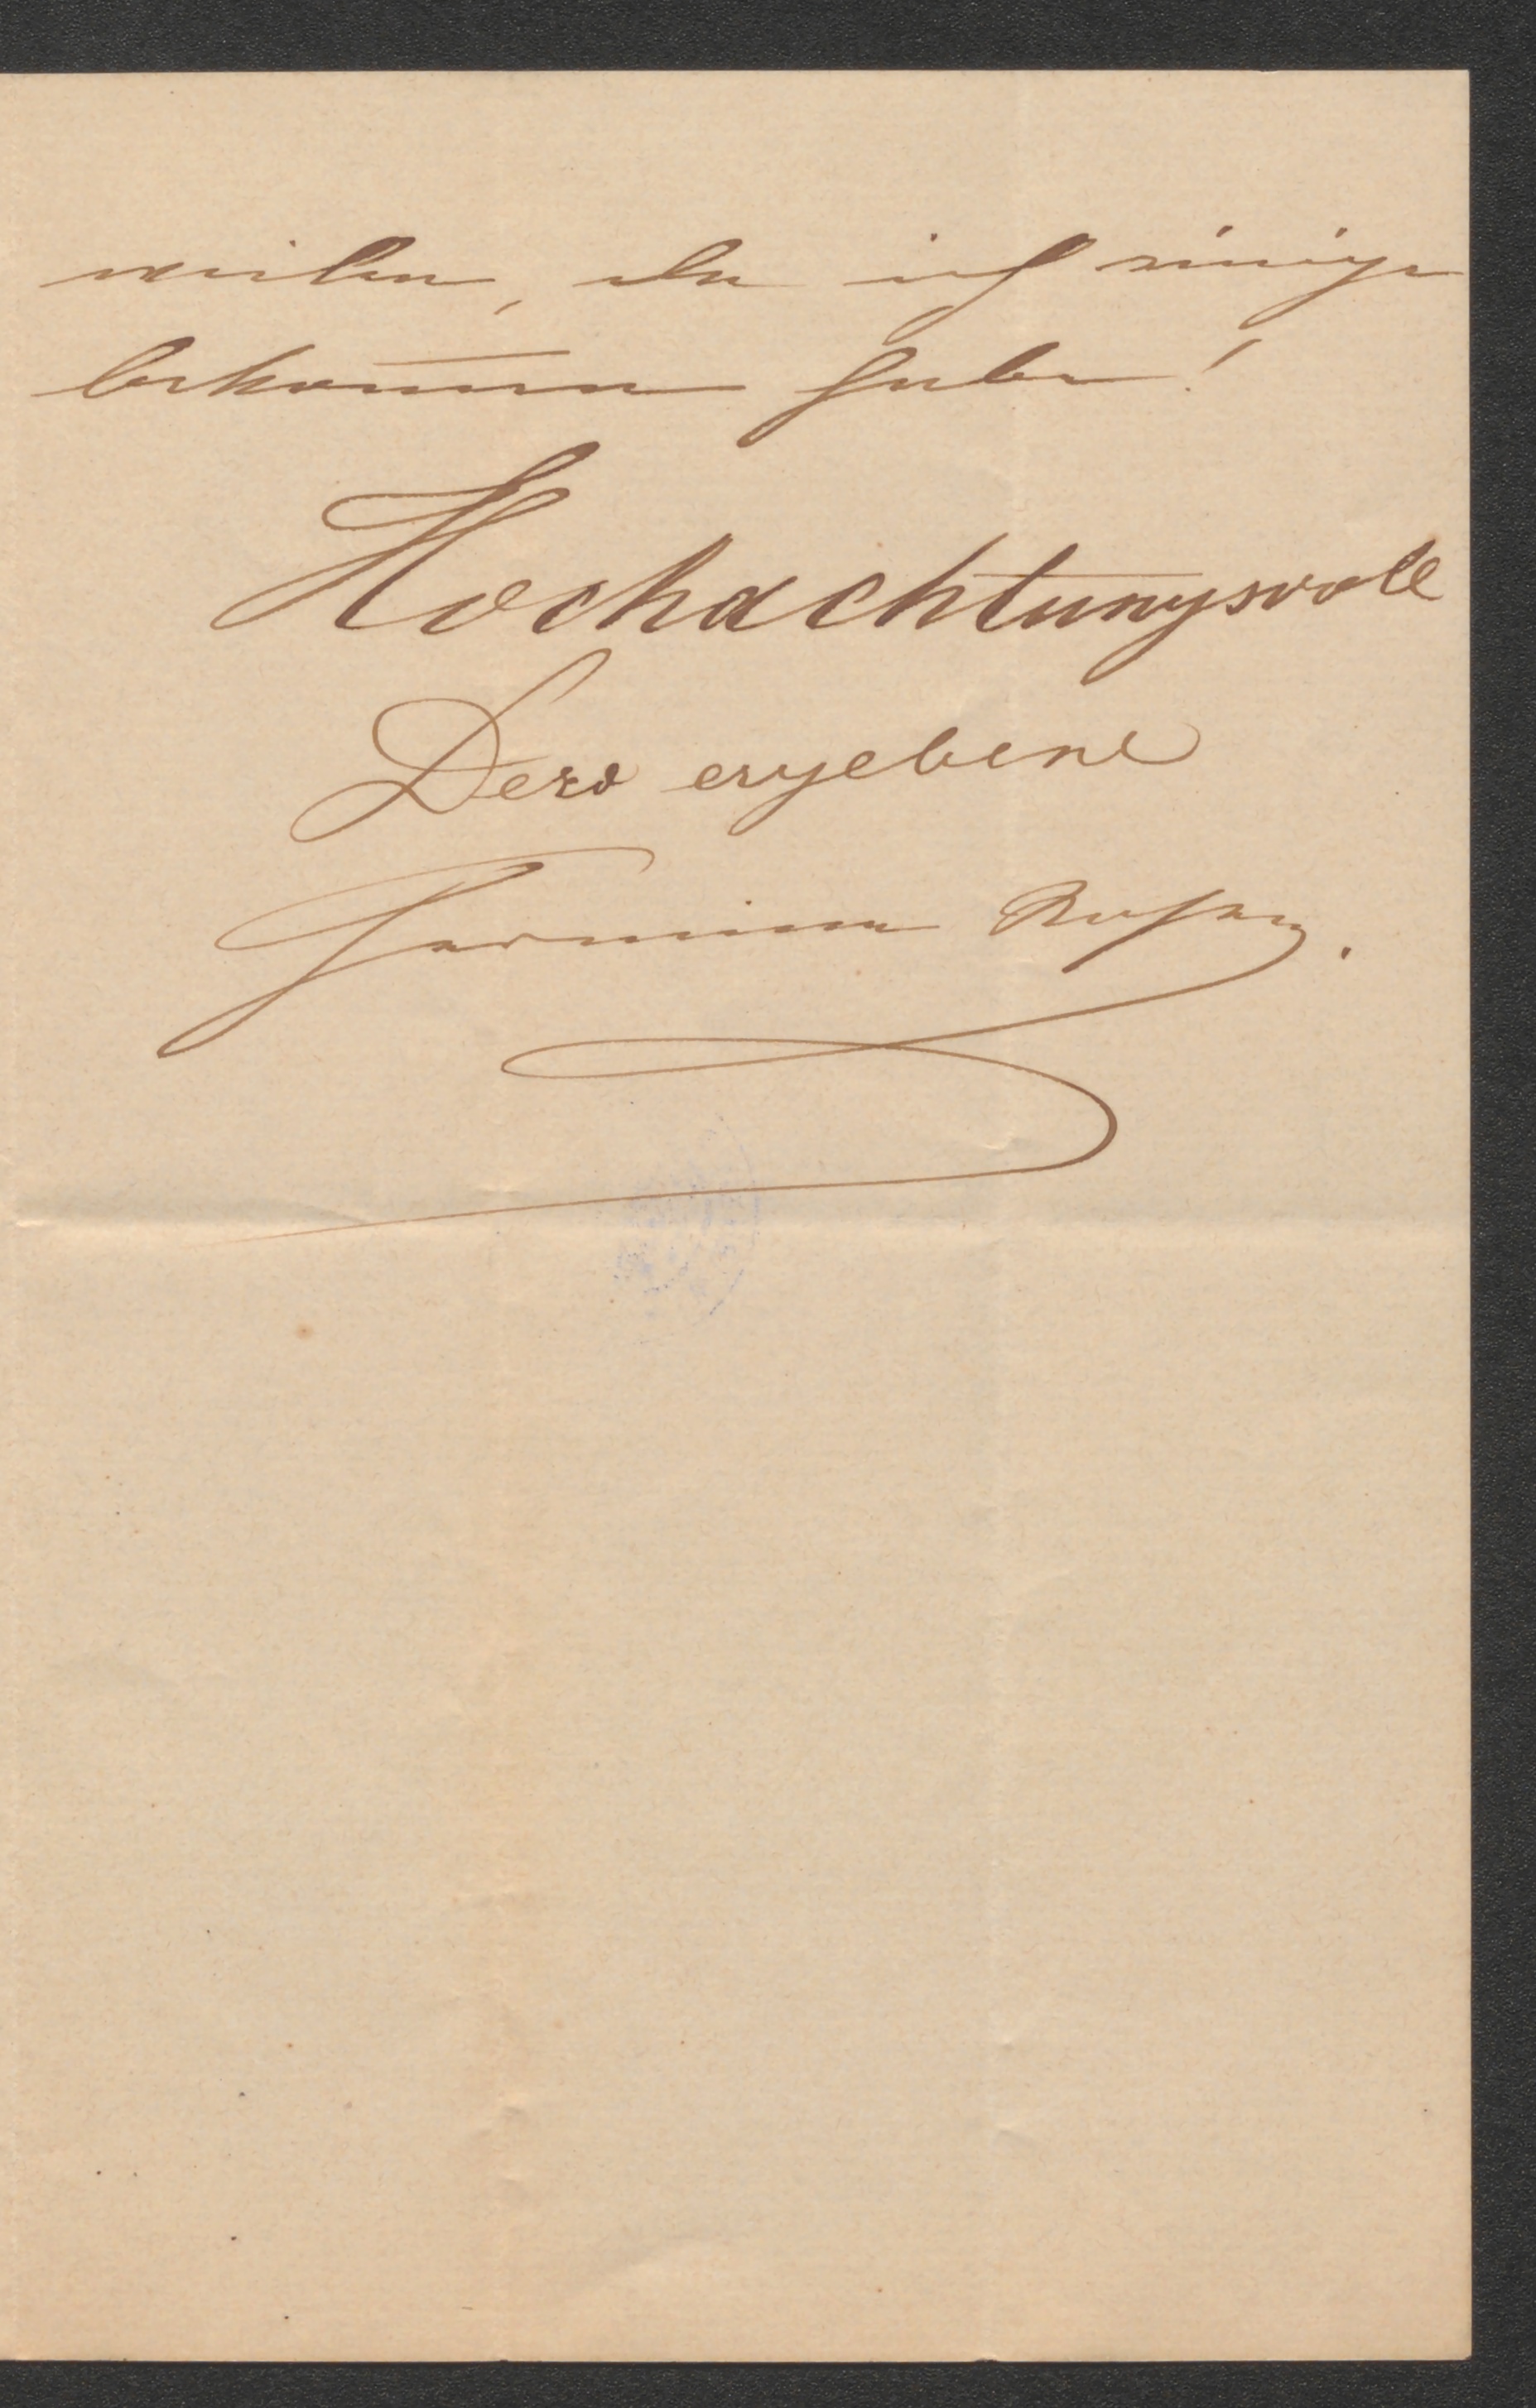 weilen, da ich einige
bekommen habe!
Hochachtungsvoll
Dero ergebene
Hermine